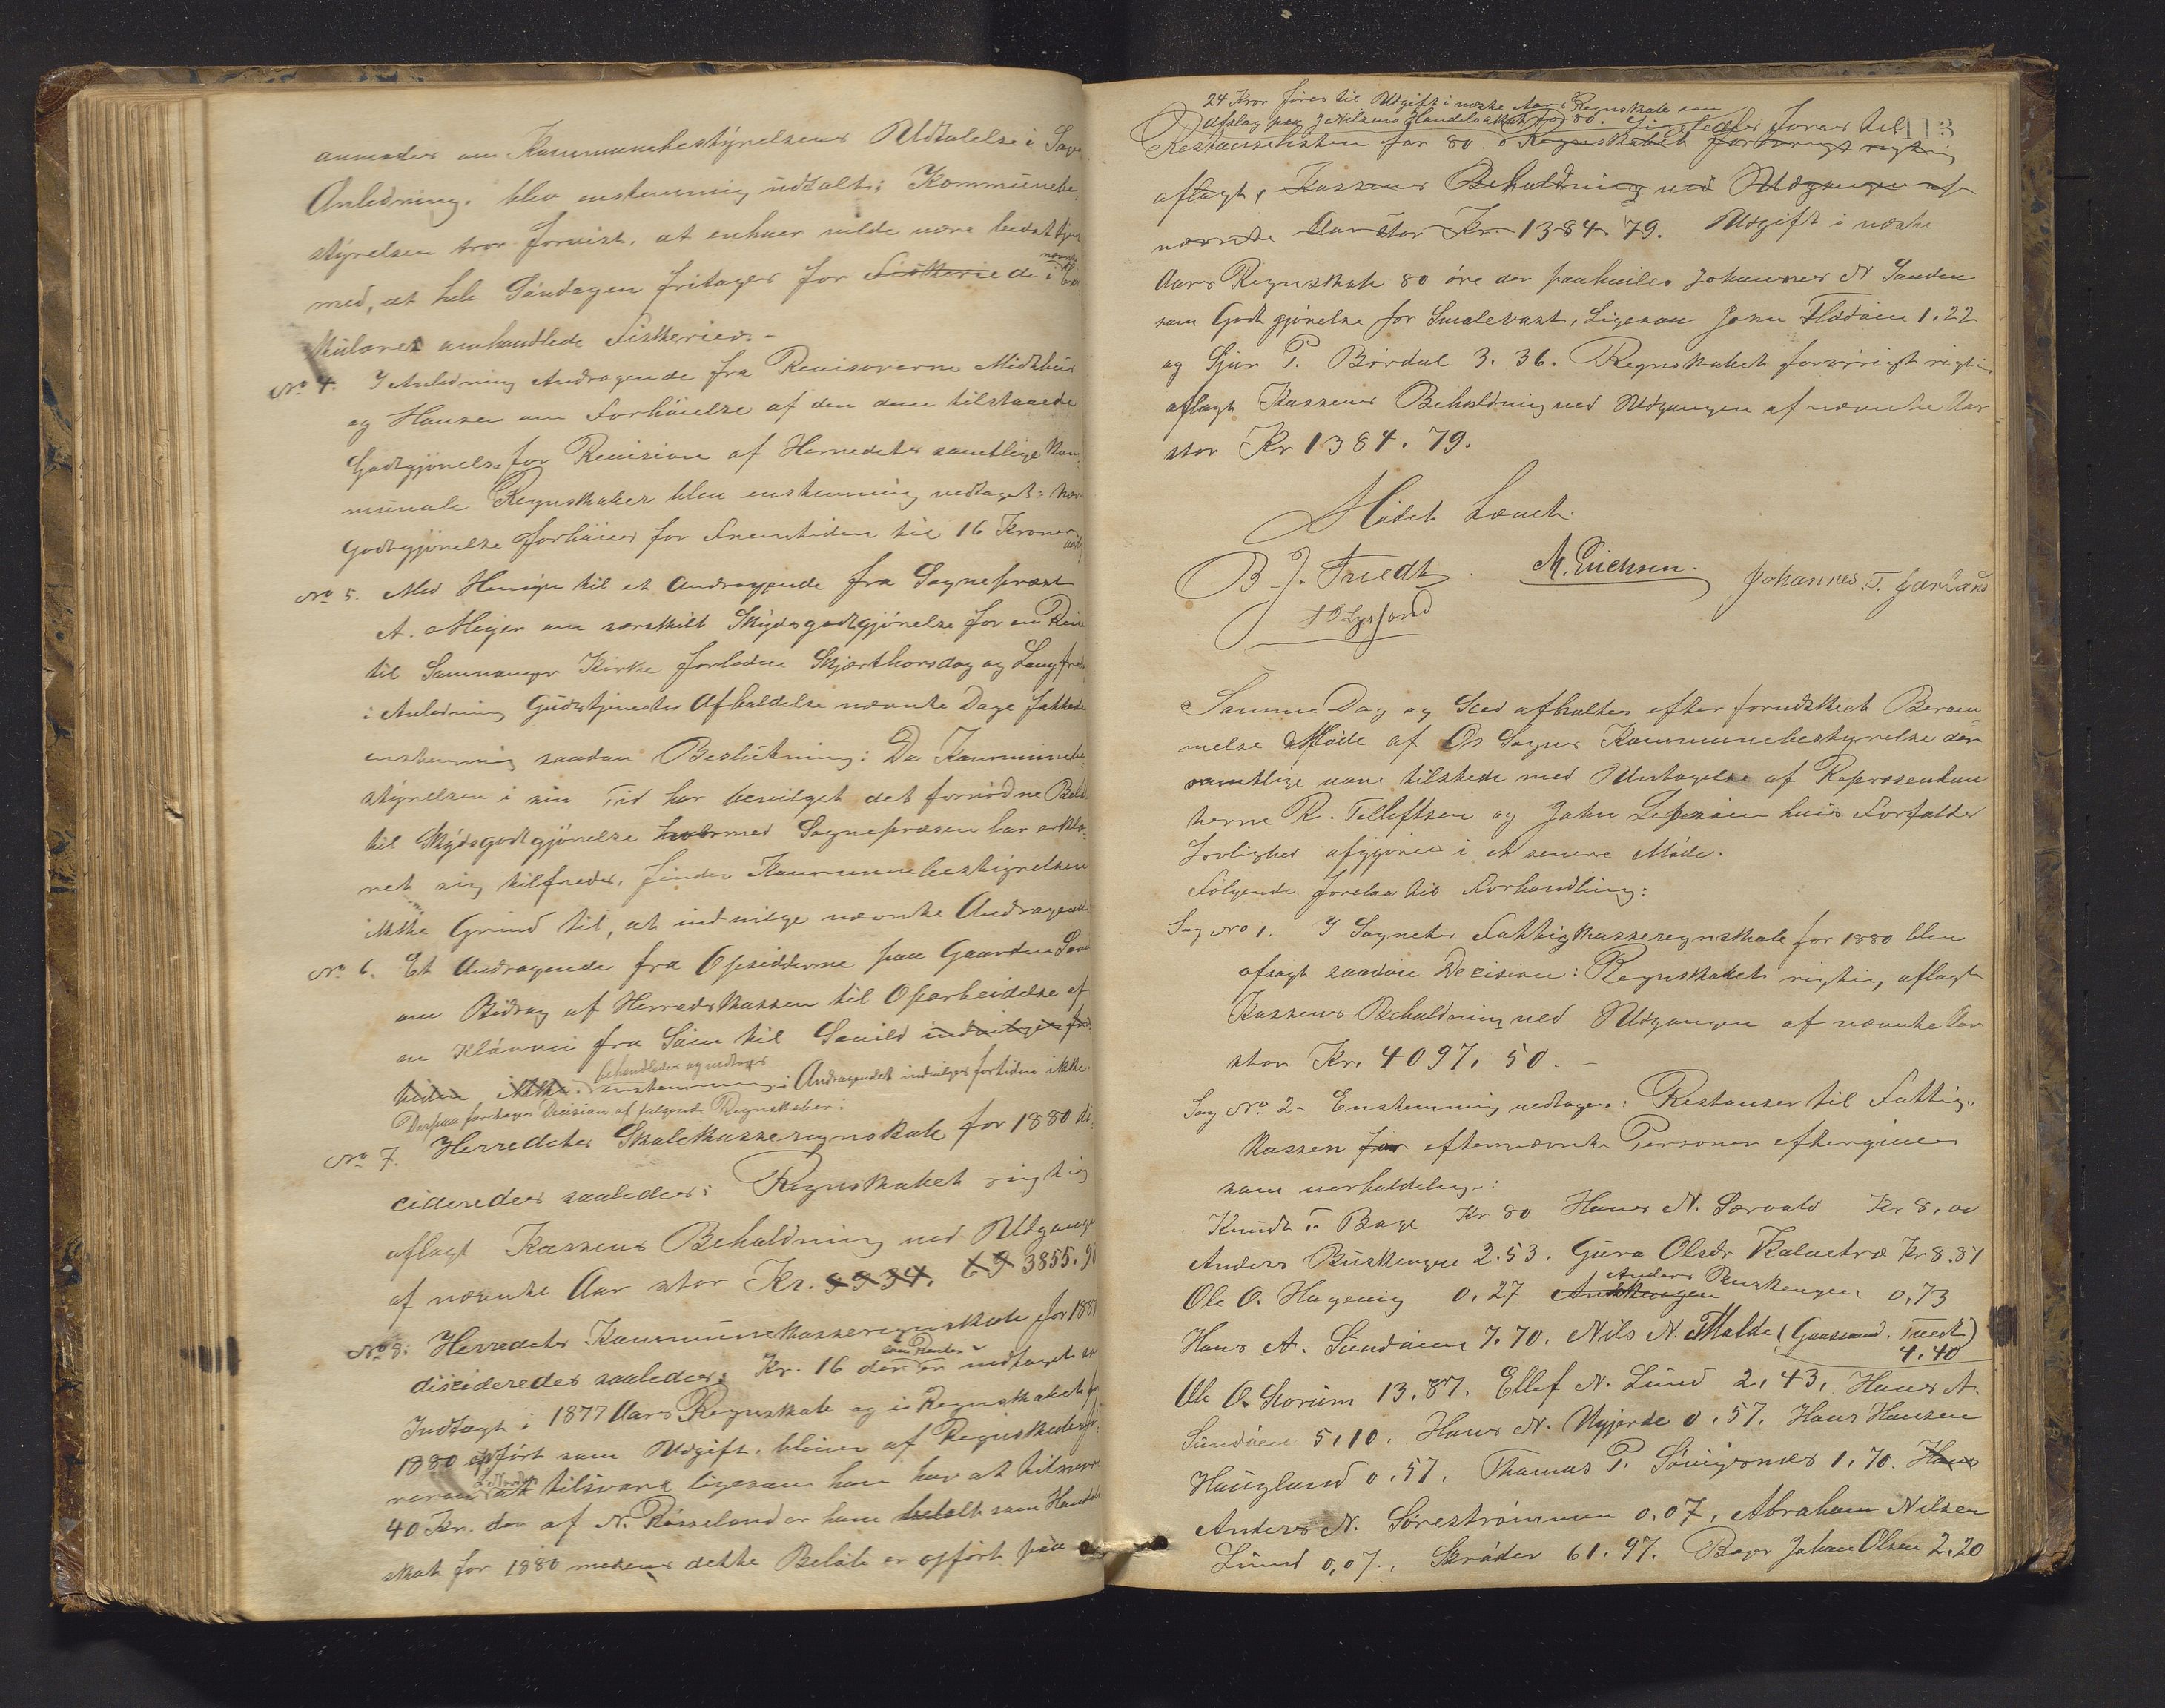 anmodes om Kommunebestyrelsens Udtalelse i Sagens
Anledning. blev enstemmig udtalt: Kommunebe¬
styrelsen tror forvist, at enhver vilde være bedst tjent
med, at hele Søndagen fritages for Fiskerie de i nævnte Cir¬
kulæres omhandlede Fiskerier.-
No 4. I Anledning Andragende fra Revisorerne Midthus
og Hansen om Forhøielse af den dem tilstaaede
Godtgjørelse for Revision af Herredets samtlige Kom¬
munale Regnskaber blev enstemmig vedtaget:
Godtgjørelse forhøies for Fremtiden til 16 Kroner
No 5. Med Hensyn til et Andragende fra Sogneprest
A. Meyer om særskilt Skydsgodtgjørelse for en Reise
til Samnanger Kirke forleden Skjærthorsdag og Langfredag
i Anledning Gudstjenestes Afholdelse nævnte Dage fattedes
enstemmig saadan Beslutning: Da Kommunebe¬
styrelsen i sin Tid har bevilget det fornødne Beløb
til Skydsgodtgjørelse hvormed Sognepræsten har erklæ¬
ret sig tilfreds, finder Kommunebestyrelsen
ikke Grund til, at indvilge nævnte Andragende
No 6. Et Andragende fra Opsidderne paa Gaarden
om Bidrag af Herredskassen til Oparbeidelse af
en Kløvvei fra Søen til indvilges for¬
tiden ikke. behandledes og vedtoges enstemmig: Andragendet indvilges fortiden ikke.
Derpaa foretoges Decision af følgende Regnskaber:
No 7. Herredets Skolekasseregnskab for 1880 de¬
cideredes saaledes: Regnskabet rigtig
aflagt Kassens Beholdning ved Udgangen
af nævnte Aar stor Kr. 3855.90
No 8. Herredets Kommunekasseregnskab for 1880
decideredes saaledes: Kr. 16 der som Rentes er indtaget
Indtægt i 1877 Aars Regnskab og i Regnskabet for
1880 opført som Udgift, bliver af Regnskabsfø¬
reren at tilsvare ligesom han har at tilsvare
40 Kr. der af N. Røsseland er ham betalt som Handels
skat for 1880 medens dette Beløb er opført paa
113
24 Kror føres til Udgift i næste Aars Regnskab som
Afslag paa J Nilsens Handelsskat for 80.
Restanselisten for 80. Regnskabet forøvrigt rigtig
aflagt, Kassens Beholdning ved Udgangen af
nævnte Aar stor Kr. 1384.79. Udgift i næste
Aars Regnskab 80 øre der paahviler Johannes N Sanden
som Godtgjørelse for Smalevaxt, Ligesom John Flødøien 1.22
og Sjur P. Børdal 3.36. Regnskabet forøvrigt rigtig
aflagt Kassens Beholdning ved Udgangen af nævnte Aar
stor Kr 1384.79.
Mødet hævet.
B J. Tvedt. M. Erichsen. Johannes. T. Hauland
Samme Dag og Sted afholdtes efter forudskeet Beram
melse Møde af Os Sogns Kommunebestyrelse der
samtlige vare tilstede med Undtagelse af Repræsentan
terne R. Tellefsen og John Lepsøien hvis Forfalds
Lovlighed afgjøres i et senere Møde.
Følgende forelaa til Forhandling:
Sag No 1. I Sognets Fattigkasseregnskab for 1880 blev
afsagt saadan Decision: Regnskabet rigtig aflagt
Kassens Beholdning ved Udgangen af nævnte Aar
stor Kr. 4097.50.-
Sag No 2- Enstemmig vedtoges: Restanser til Fattig¬
kassen for efternævnte Personer eftergives
som uerholdelig:
Knudt T. Bage Kr 80 Hans N. Særvold Kr 8,00
Anders Buskengen 2.53. Gura Olsdr Kalvetræ Kr 8.37
Ole O. Hageviig 0.27 Anders Buskengen 0,73
Hans A. Sundøien 7.70. Nils N. Malde (Gaassand. Tvedt)
4.40
Ole O. Storum 13.87. Ellef N. Lund 2,43, Hans A.
Sundøien 5,10. Hans N. Nygjerde 0.57. Hans Hansen
Haugland 0.57. Thomas P. Søvigsnes 1.70. Hans
Anders N. Sørestrømmen 0.07, Abraham Nilsen
Lund 0,07., Skræder 61.97. Bager Johan Olsen 2.20